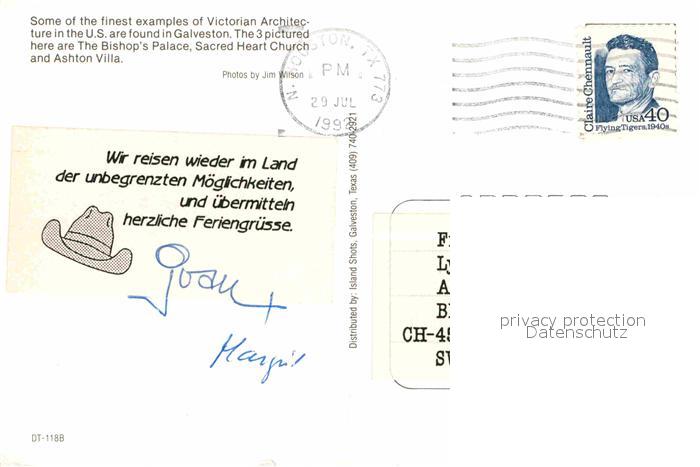 Some of the finest examples of Victorian Architec-
ture in the U.S. are found in Galveston. The 3 pictured
here are The Bishop's Palace, Sacred Heart Church
and Ashton Villa.
Photos by Jim Wilson
N. HOUSTON, TX 773
PM
29 JUL
1992
Claire Chennault
USA 40
Flying Tigers, 1940s
Wir reisen wieder im Land
der unbegrenzten Möglichkeiten,
und übermitteln
herzliche Feriengrüsse.
Margrit
Distributed by: Island Shots, Galveston, Texas (409) 740-2921
F
L
A
B
CH-45
SW
privacy protection
Datenschutz
DT-118B